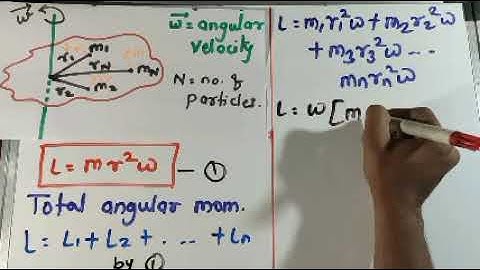 w⃗
r₁ m₁
rN
mN
r₂ m₂
w⃗ = angular
velocity
N = no. of
particles.
L = mr²ω — ①
Total angular mom.
L = L₁ + L₂ + . ... + Ln
by ①
L = m₁r₁²ω + m₂r₂²ω
+ m₃r₃²ω ...
mnrn²ω
L = ω [m